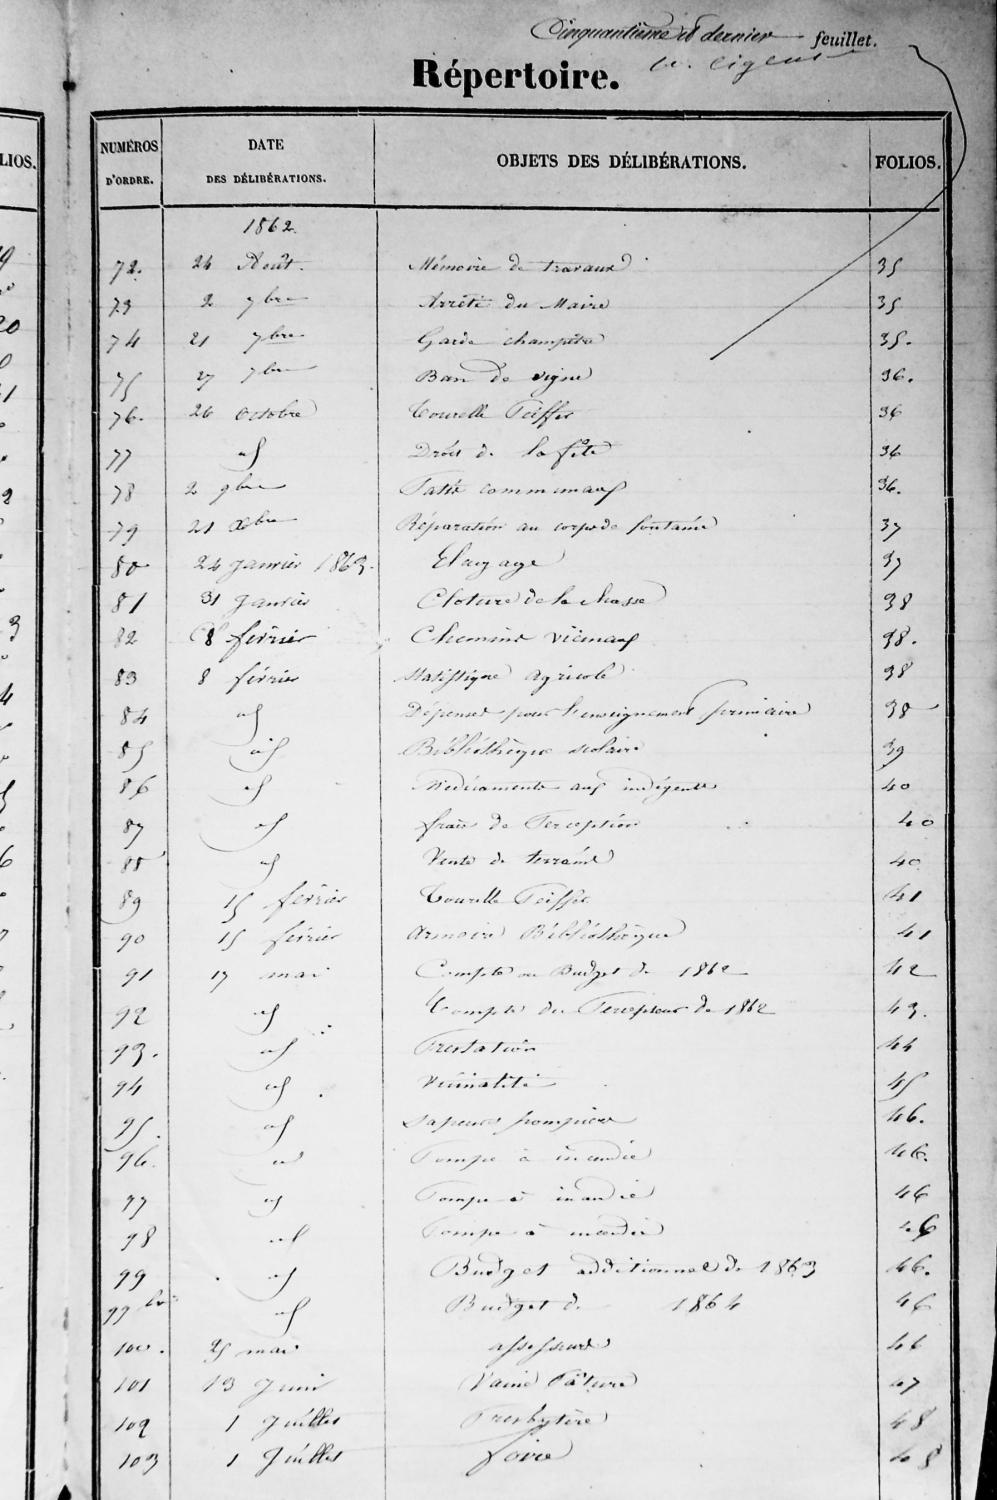 Cinquantième et dernier feuillet.
Répertoire.
NUMÉROS D'ORDRE. DATE DES DÉLIBÉRATIONS. OBJETS DES DÉLIBÉRATIONS. FOLIOS.
1862
72. 24 Août. Mémoire de travaux 35
73 2 7bre Arrêté du Maire 35
74 21 7bre Garde champêtre 35.
75 27 7bre Ban de vigne 36.
76. 26 octobre Tourelle 36
77 id Droit de la fête 36
78 2 9bre communaux 36.
79 21 Xbre Réparation au corps de fontaine 37
80 24 janvier 1863. Elagage 37
81 31 janvier Cloture de la chasse 38
82 8 février Chemins vicinaux 38.
83 8 février Statistique agricole 38
84 id Dépenses pour l'enseignement primaire 38
85 id Bibliothèque scolaire 39
86 id Médicaments aux indigents 40
87 id frais de Perception 40
88 id Vente de terrains 40
89 15 février Tourelle 41
90 15 février Armoire Bibliothèque 41
91 17 mai Compte ou Budget de 1862 42
92 id Compte du Percepteur de 1862 43.
93. id Prestation 44
94 id Vicinalité 45
95. id Sapeurs pompiers 46.
96. id Pompe à incendie 46.
97 id Pompe à incendie 46
98 id Pompe à incendie 46
99 id Budget additionnel de 1863 46.
99 bis id Budget de 1864 46
100. 25 mai assesseurs 46
101 13 Juin Vaine Pâture 47
102 1 Juillet Presbytère 48
103 1 Juillet foire 48